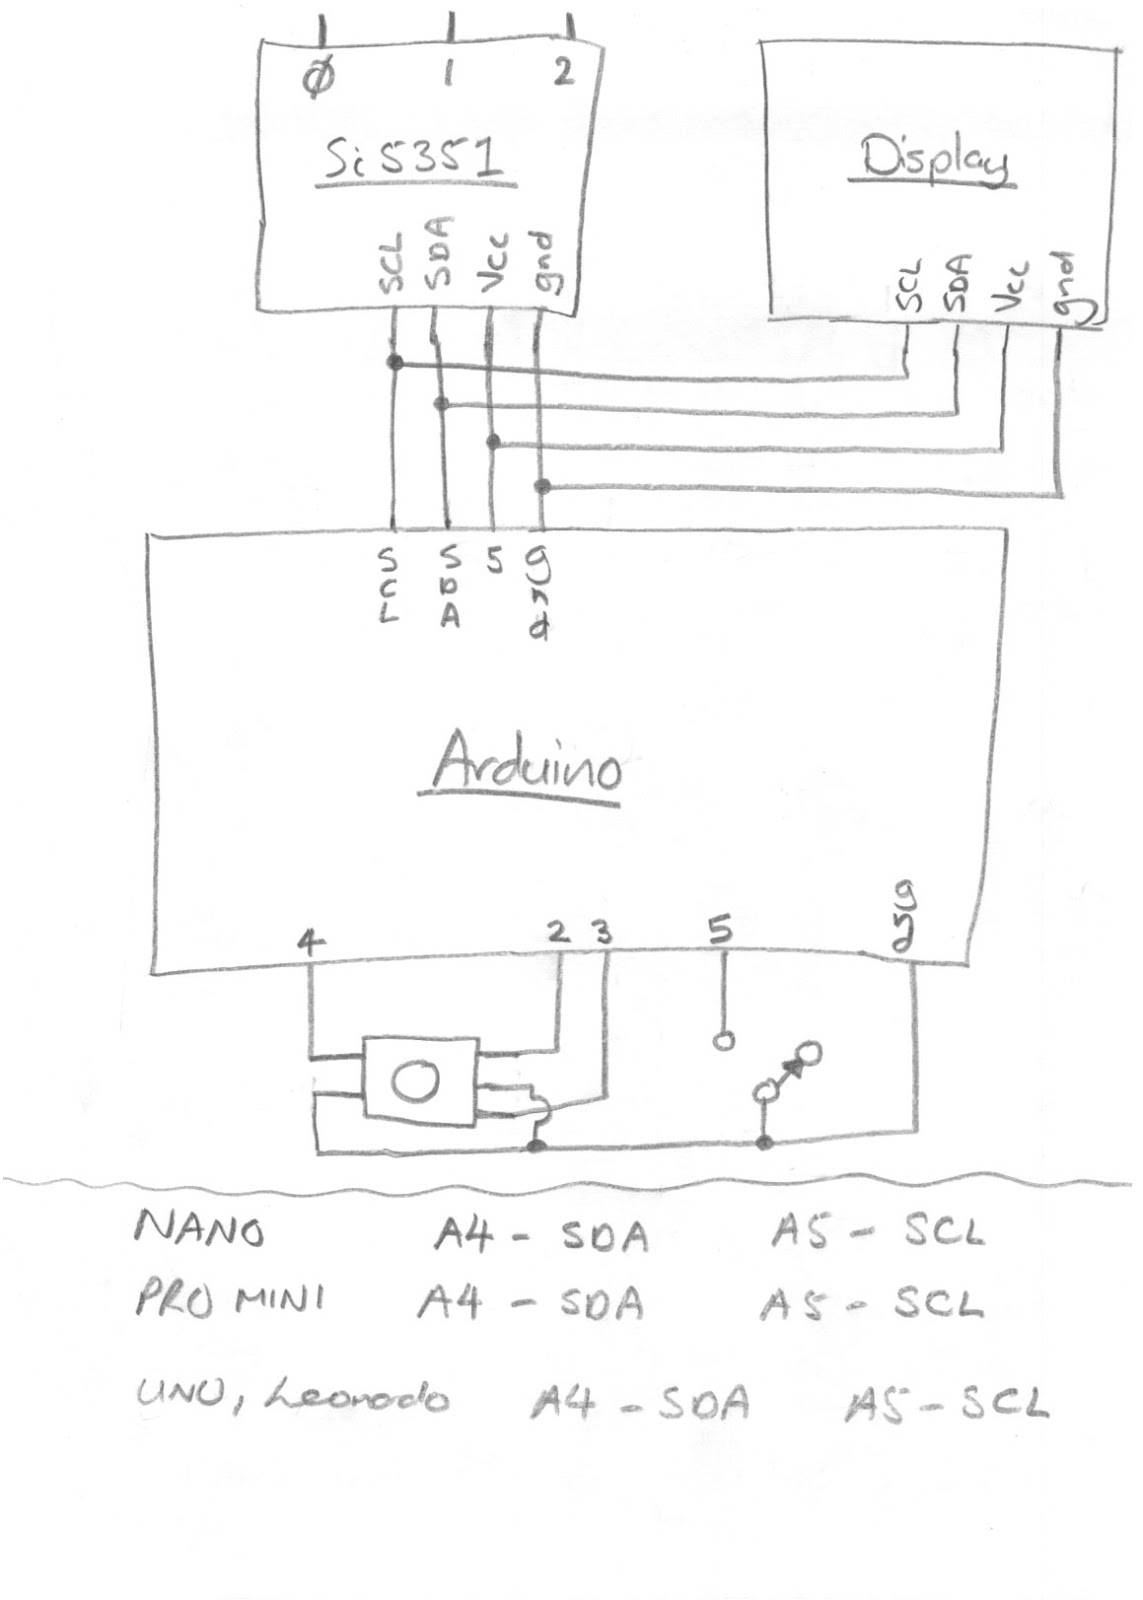 Ø 1 2
Si5351
Display
SCL SDA Vcc gnd
SCL SDA Vcc gnd
SCL SDA 5 gnd
Arduino
4 2 3 5 gnd
NANO A4 - SDA A5 - SCL
PRO MINI A4 - SDA A5 - SCL
UNO, Leonodo A4 - SDA A5 - SCL